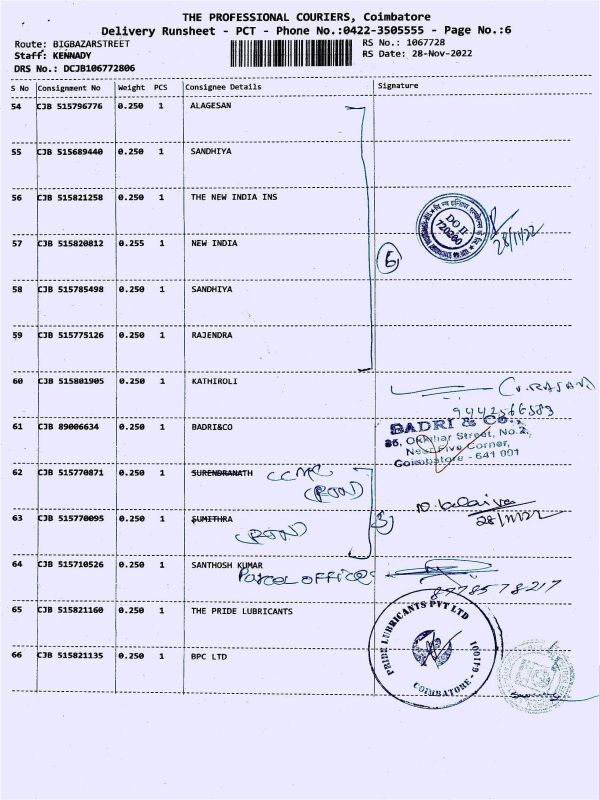 THE PROFESSIONAL COURIERS, Coimbatore
Delivery Runsheet - PCT - Phone No.:0422-3505555 - Page No.:6
Route: BIGBAZARSTREET
RS No.: 1067728
Staff: KENNADY
RS Date: 28-Nov-2022
DRS No.: DCJB106772806
S No Consignment No Weight PCS Consignee Details Signature
54 CJB 515796776 0.250 1 ALAGESAN
55 CJB 515689440 0.250 1 SANDHIYA
56 CJB 515821258 0.250 1 THE NEW INDIA INS
DO II
720200
28/11/22
57 CJB 515820812 0.255 1 NEW INDIA
58 CJB 515785498 0.250 1 SANDHIYA
59 CJB 515775126 0.250 1 RAJENDRA
60 CJB 515801905 0.250 1 KATHIROLI
61 CJB 89006634 0.250 1 BADRI&CO
BADRI & CO.,
Street, No.2,
Near Five Corner,
Coimbatore - 641 001
62 CJB 515770871 0.250 1 SURENDRANATH
63 CJB 515770095 0.250 1 SUMITHRA
28/11/22
64 CJB 515710526 0.250 1 SANTHOSH KUMAR
Parcel office
65 CJB 515821160 0.250 1 THE PRIDE LUBRICANTS
PRIDE LUBRICANTS PVT LTD
COIMBATORE - 641001
66 CJB 515821135 0.250 1 BPC LTD